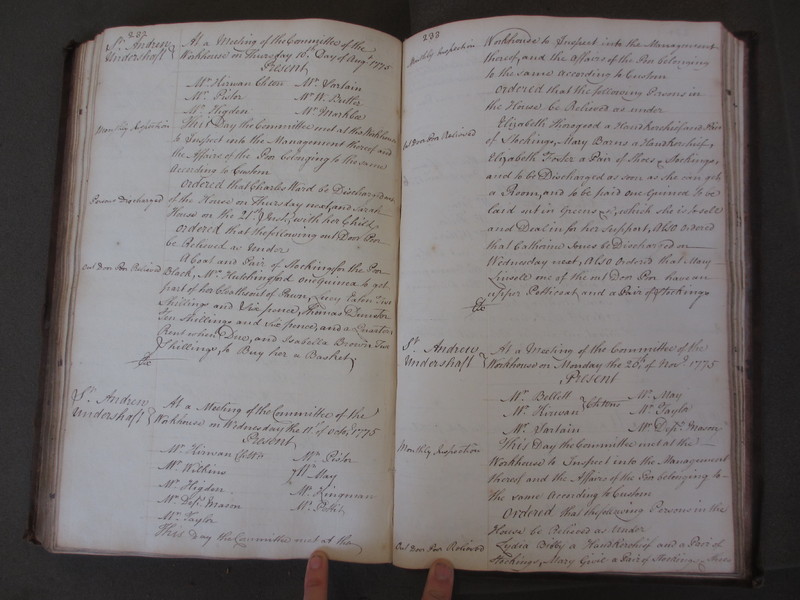 237
St. Andrew
Undershaft
At a Meeting of the Committee of the
Workhouse on Thursday 10th. Day of Augt. 1775
Present
Mr. Kirwan Mr. Sartain
Mr. Pistor Mr. W. Butler
Mr. Higden Mr. Markbee
Monthly Inspection
This Day the Committee met at the Workhouse
to Inspect into the Management thereof and
the Affairs of the Poor belonging to the same
According to Custom
Persons Discharged
Ordered that Charles Ward be Discharged out
of the House on Thursday next, and Sarah
House on the 21st. with her Child
Ordered that the following out Door Poor
be Relieved as Under
Out Door Poor Relieved
A Coat and Pair of Stockings for the Poor
Black, Mrs. Hutchingford one Guinea to get
part of her Cloaths out of Pawn,
Shillings and Six pence, Thomas
Ten Shillings and Six pence, and a Quarters
Rent when Due, and Isabella Brown Two
Shillings, to Buy her a Basket
St. Andrew
Undershaft
At a Meeting of the Committee of the
Workhouse on Wednesday the 11th. of Octor. 1775
Present
Mr. Kirwan Mr. Pistor
Mr. Wilkins Mr. May
Mr. Higden Mr. Kingman
Mr. Depy. Mason Mr. Pettit
Mr. Taylor
This day the Committee met at the
238
Monthly Inspection
Workhouse to Inspect into the Management
thereof, and the Affairs of the Poor belonging
to the same According to Custom
Ordered that the following Persons in
the House be Relieved as under
Out Door Poor Relieved
Elizabeth Thorogood a Handkerchief and Pair
of Stockings, Mary Barns a Handkerchief,
Elizabeth Foster a Pair of Shoes & Stockings,
and to be Discharged as soon as she can get
a Room, and to be paid one Guinea to be
laid out in Greens &c., which she is to sell
and Deal in for her Support, Also Ordered
that Catharine Jones be Discharged on
Wednesday next, Also Ordered that Mary
Linsell one of the out Door Poor have an
upper Petticoat, and a Pair of Stockings
St. Andrew
Undershaft
At a Meeting of the Committee of the
Workhouse on Monday the 20th. of Novr. 1775
Present
Mr. Bellett Mr. May
Mr. Kirwan Mr. Taylor
Mr. Sartain Mr. Depy. Mason
Monthly Inspection
This Day the Committee met at the
Workhouse to Inspect into the Management
thereof and the Affairs of the Poor belonging to
the same According to Custom
Ordered that the following Persons in the
House be Relieved as Under
Out Door Poor Relieved
Lydia Bibby a Handkerchief and a Pair of
Stockings, Mary a Pair of Stockings &